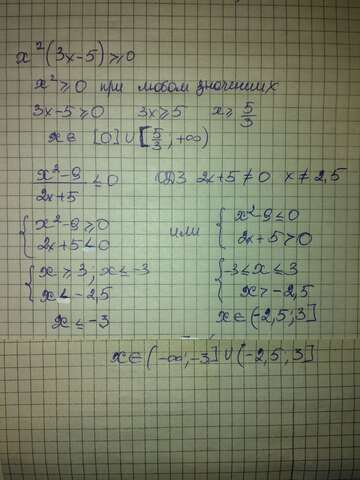 x²(3x-5)≥0
x²≥0 при любом значениях
3x-5≥0 3x≥5 x≥ 5/3
x∈ [0]∪[5/3, +∞)
(x²-9)/(2x+5) ≤0 ОДЗ 2x+5≠0 x≠2,5
{x²-9≥0 или {x²-9≤0
2x+5<0 2x+5>0
{x≥3; x≤-3 {-3≤x≤3
x<-2,5 x>-2,5
x≤-3 x∈(-2,5; 3]
x∈(-∞;-3]∪(-2,5; 3]